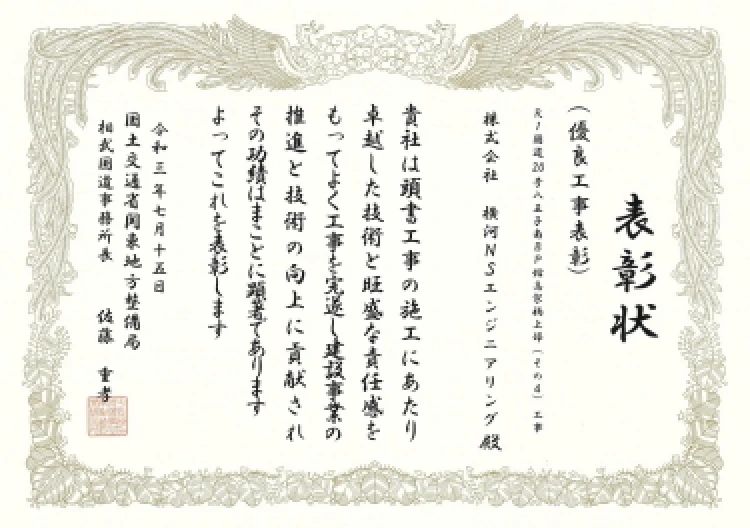 表彰状
(優良工事表彰)
R1国道20号八王子南BP館高架橋上部(その4)工事
株式会社 横河NSエンジニアリング 殿
貴社は頭書工事の施工にあたり
卓越した技術と旺盛な責任感を
もってよく工事を完遂し建設事業の
推進と技術の向上に貢献され
その功績はまことに顕著であります
よってこれを表彰します
令和三年七月十五日
国土交通省関東地方整備局
相武国道事務所長 佐藤 重孝